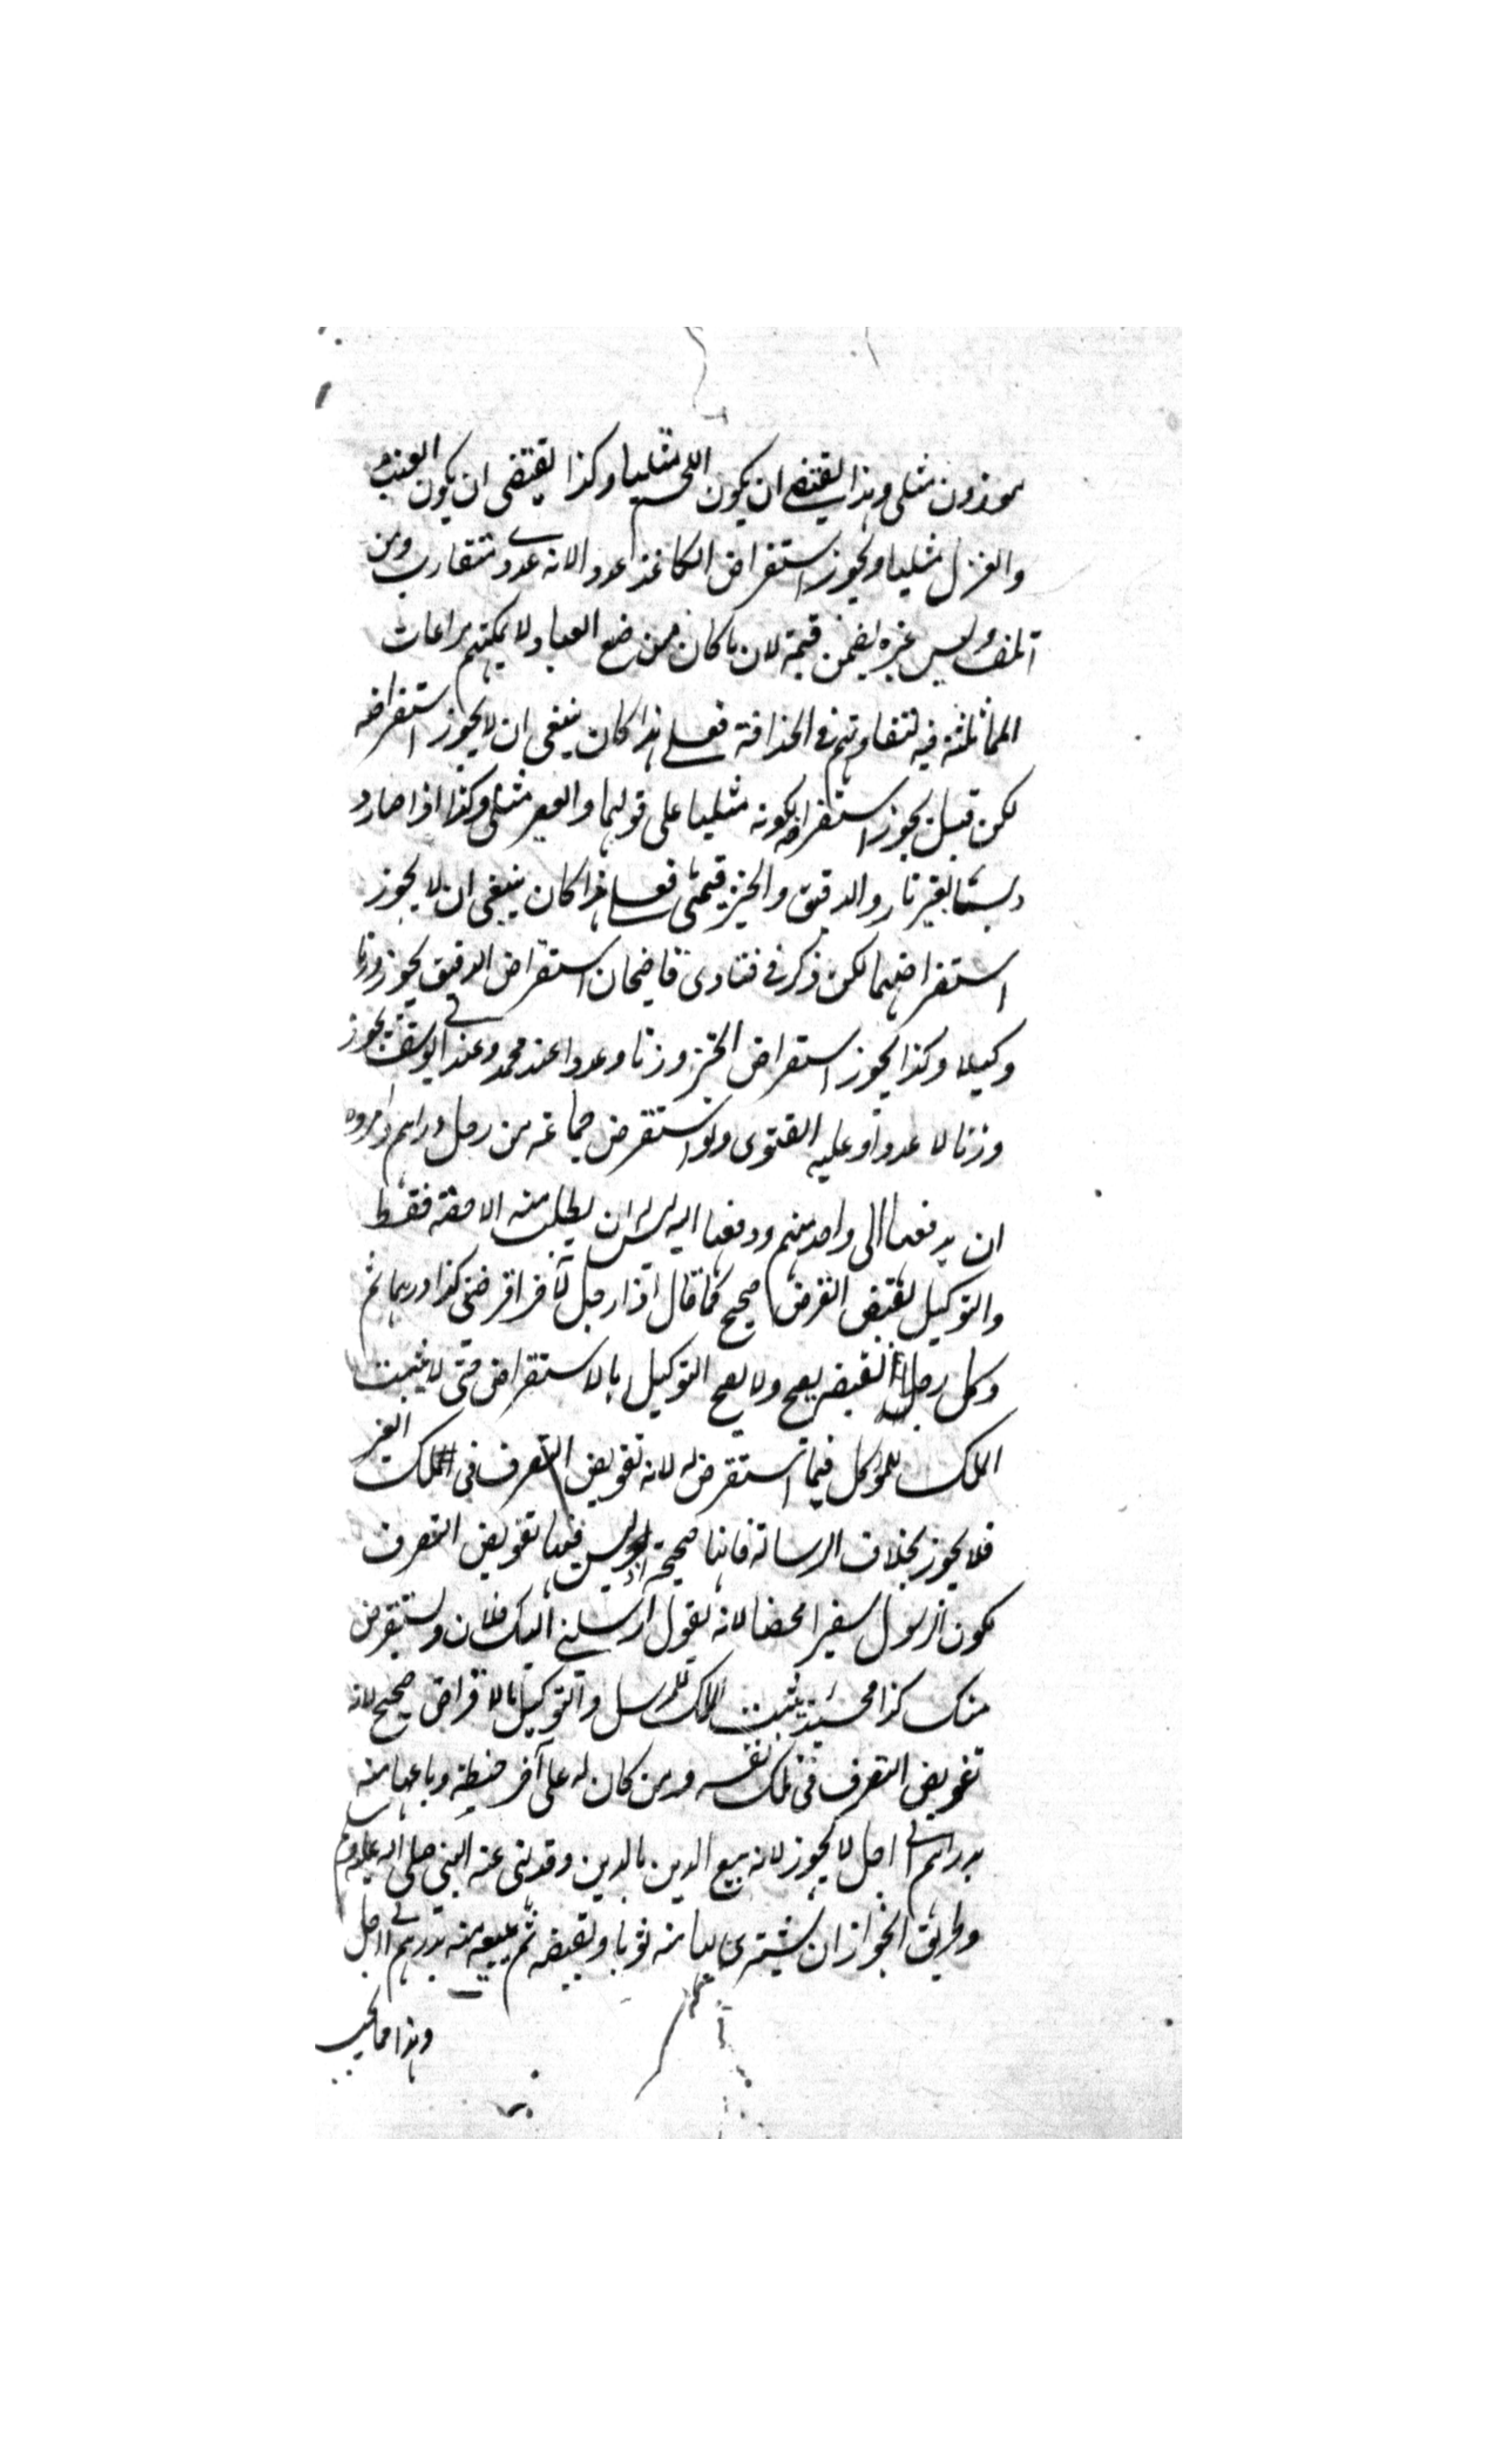 موزون مثلى وهذا يقتضى ان يكون اللحم مثليا وكذا يقتضى ان يكون العنب
والغزل مثليا ويجوز استقراض الكاغذ عددا لانه عددى متقارب ومن
اتلف لبس غيره يضمن قيمة لان ما كان من صنع العباد لا يمكنهم مراعات
المماثلة فيه لتفاوتهم فى الحذاقة فعلى هذا كان ينبغى ان لا يجوز استقراضه
لكن قيل يجوز استقراضه لكونه مثليا على قولهما والعصير مثلى وكذا اذا صار
دبسا بغير نار والدقيق والخبز قيمتى فعلى هذا كان ينبغى ان لا يجوز
استقراضهما لكن ذكر فى فتاوى قاضيخان استقراض الدقيق يجوز وزنا
وكيلا وكذا يجوز استقراض الخبز وزنا وعددا عند محمد وعند ابى يوسف يجوز
وزنا لا عددا وعليه الفتوى ولو استقرض جماعة من رجل دراهم وامروه
ان يدفعها الى واحد منهم ودفعها اليه ليس له ان يطلب منه الا حصته فقط
والتوكيل بقبض القرض صحيح كما قال اذا رجل لآخر اقرضنى كذا درهما ثم
وكل رجلا بقبضه يصح ولا يصح التوكيل بالاستقراض حتى لا يثبت
الملك للموكل فيما استقرض له لانه تفويض التصرف فى ملك الغير
فلا يجوز بخلاف الرسالة فانها صحيحة اذ ليس فيها تفويض التصرف
لكون الرسول سفيرا محضا لانه يقول ارسلنى اليك فلان ويستقرض
منك كذا فحينئذ يثبت الملك للمرسل والتوكيل بالاقراض صحيح لانه
تفويض التصرف فى ملك نفسه ومن كان له على آخر حنطة وباعها منه
بدراهم الى اجل لا يجوز لانه بيع الدين بالدين وقد نهى عنه النبى صلى الله عليه وسلم
وطريق الجواز ان يشترى بها منه ثوبا ويقبضه ثم يبيعه منه بدراهم الى اجل
وهذا مما يجب